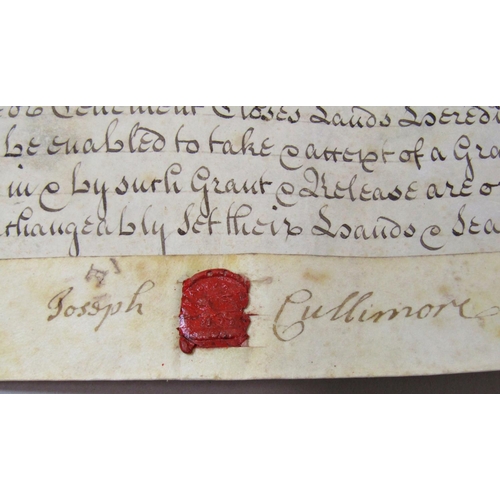 Tenement Closes Lands Heredi
be enabled to take & accept of a Gra
in & by such Grant & Release are o
changeably set their Hands & Sea
Joseph Cullimore